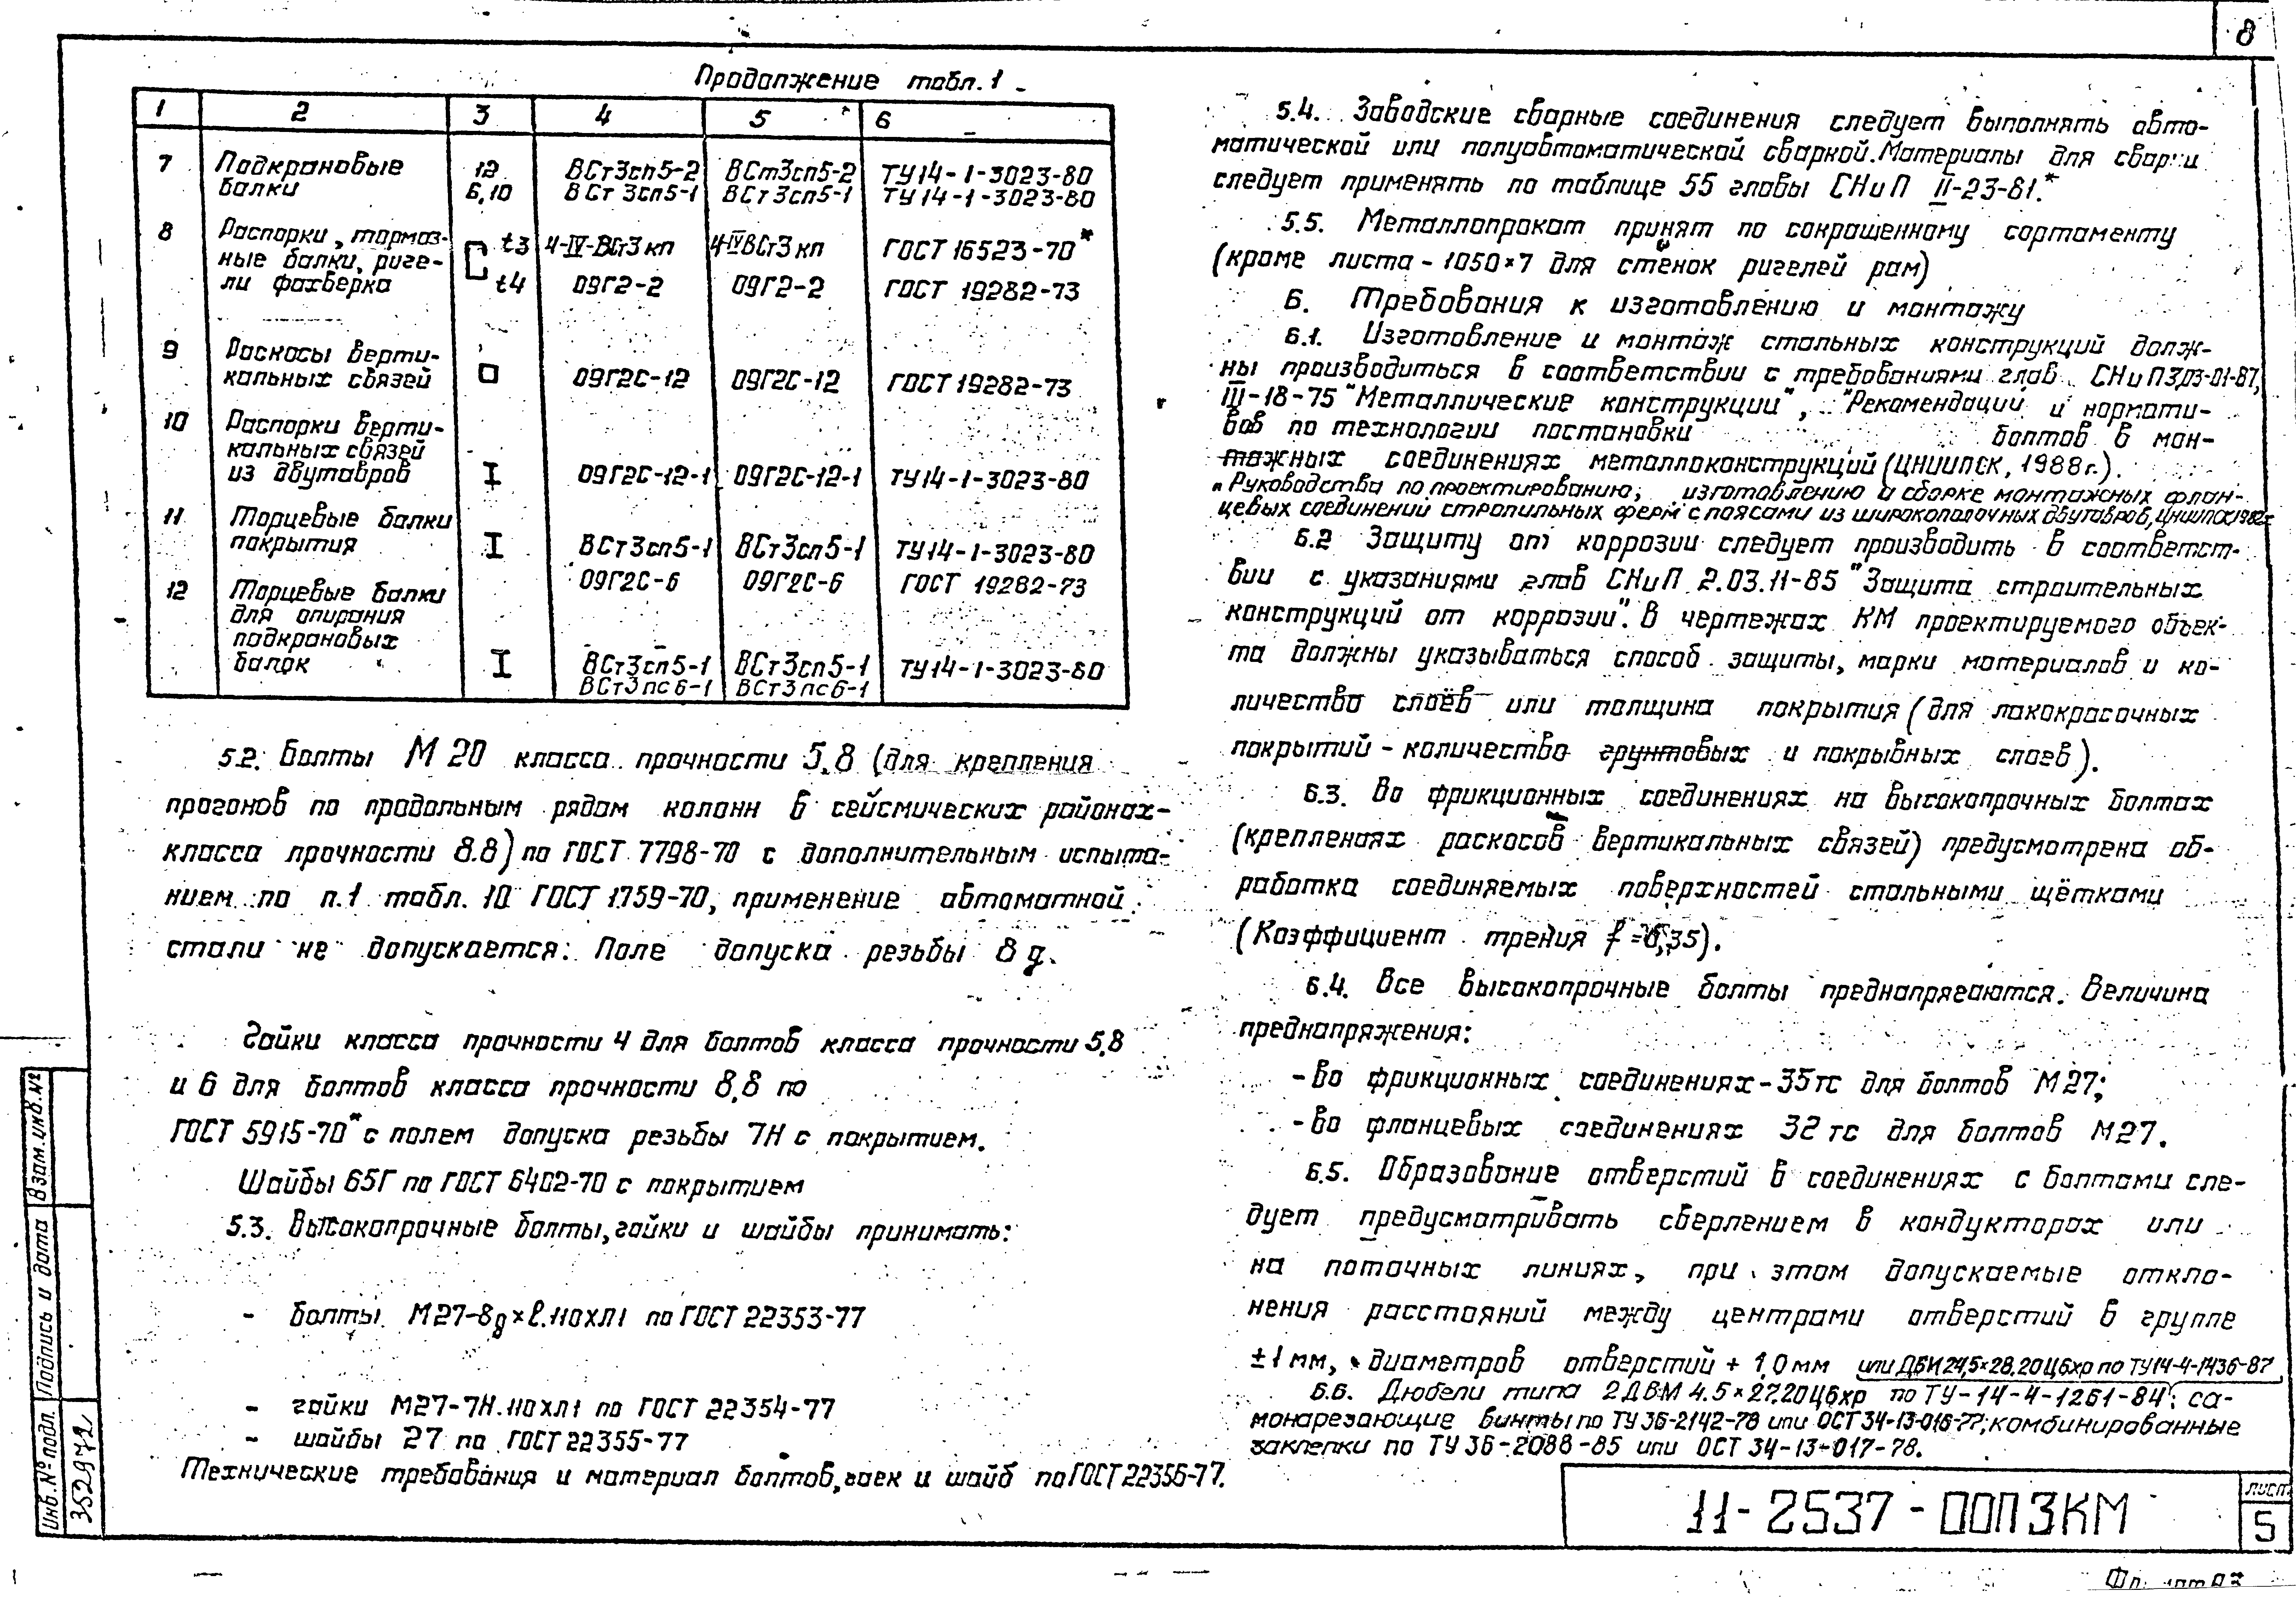 8
Продолжение табл. 1
1 2 3 4 5 6
7 Подкрановые 12 ВСт3сп5-2 ВСт3сп5-2 ТУ14-1-3023-80
балки 6,10 ВСт3сп5-1 ВСт3сп5-1 ТУ14-1-3023-80
8 Распорки, тормоз- t3 4-IV-ВСт3кп 4-IVВСт3кп ГОСТ 16523-70*
ные балки, риге-
ли фахверка t4 09Г2-2 09Г2-2 ГОСТ 19282-73
9 Раскосы верти-
кальных связей 09Г2С-12 09Г2С-12 ГОСТ 19282-73
10 Распорки верти-
кальных связей
из двутавров I 09Г2С-12-1 09Г2С-12-1 ТУ14-1-3023-80
11 Торцевые балки
покрытия I ВСт3сп5-1 ВСт3сп5-1 ТУ14-1-3023-80
12 Торцевые балки 09Г2С-6 09Г2С-6 ГОСТ 19282-73
для опирания
подкрановых
балок I ВСт3сп5-1 ВСт3сп5-1 ТУ14-1-3023-80
ВСт3пс6-1 ВСт3пс6-1
5.2. Болты М20 класса прочности 5.8 (для крепления
прогонов по продольным рядам колонн в сейсмических районах-
класса прочности 8.8) по ГОСТ 7798-70 с дополнительным испыта-
нием по п.1 табл. 10 ГОСТ 1759-70, применение автоматной
стали не допускается. Поле допуска резьбы 8g.
Гайки класса прочности 4 для болтов класса прочности 5.8
и 6 для болтов класса прочности 8.8 по
ГОСТ 5915-70* с полем допуска резьбы 7Н с покрытием.
Шайбы 65Г по ГОСТ 6402-70 с покрытием
5.3. Высокопрочные болты, гайки и шайбы принимать:
- болты М27-8g×ℓ.110ХЛ1 по ГОСТ 22353-77
- гайки М27-7Н.110ХЛ1 по ГОСТ 22354-77
- шайбы 27 по ГОСТ 22355-77
Технические требования и материал болтов, гаек и шайб по ГОСТ 22356-77.
5.4. Заводские сварные соединения следует выполнять авто-
матической или полуавтоматической сваркой. Материалы для сварки
следует применять по таблице 55 главы СНиП II-23-81.*
5.5. Металлопрокат принят по сокращенному сортаменту
(кроме листа - 1050×7 для стенок ригелей рам)
6. Требования к изготовлению и монтажу
6.1. Изготовление и монтаж стальных конструкций долж-
ны производиться в соответствии с требованиями глав СНиП 3.03-01-87,
III-18-75 "Металлические конструкции", "Рекомендаций и нормати-
вов по технологии постановки болтов в мон-
тажных соединениях металлоконструкций (ЦНИИПСК, 1988г.).
"Руководства по проектированию, изготовлению и сборке монтажных флан-
цевых соединений стропильных ферм с поясами из широкополочных двутавров, ЦНИИПСК 1982г.
6.2 Защиту от коррозии следует производить в соответст-
вии с указаниями глав СНиП 2.03.11-85 "Защита строительных
конструкций от коррозии". В чертежах КМ проектируемого объек-
та должны указываться способ защиты, марки материалов и ко-
личество слоёв или толщина покрытия (для лакокрасочных
покрытий - количество грунтовых и покрывных слоев).
6.3. Во фрикционных соединениях на высокопрочных болтах
(креплениях раскосов вертикальных связей) предусмотрена об-
работка соединяемых поверхностей стальными щётками
(Коэффициент трения f=0,35).
6.4. Все высокопрочные болты преднапрягаются. Величина
преднапряжения:
- во фрикционных соединениях - 35тс для болтов М27;
- во фланцевых соединениях 32 тс для болтов М27.
6.5. Образование отверстий в соединениях с болтами сле-
дует предусматривать сверлением в кондукторах или
на поточных линиях, при этом допускаемые откло-
нения расстояний между центрами отверстий в группе
±1мм, диаметров отверстий + 1,0мм или ДВИ 24,5×28,20Ц6хр по ТУ14-4-1436-87
6.6. Дюбели типа 2ДВМ 4.5×27,20Ц6хр по ТУ-14-4-1261-84; са-
монарезающие винты по ТУ 36-2142-78 или ОСТ 34-13-016-77; комбинированные
заклепки по ТУ 36-2088-85 или ОСТ 34-13-017-78.
Инв.№ подл. Подпись и дата Взам.инв.№
352972
11-2537-00П3КМ
лист
5